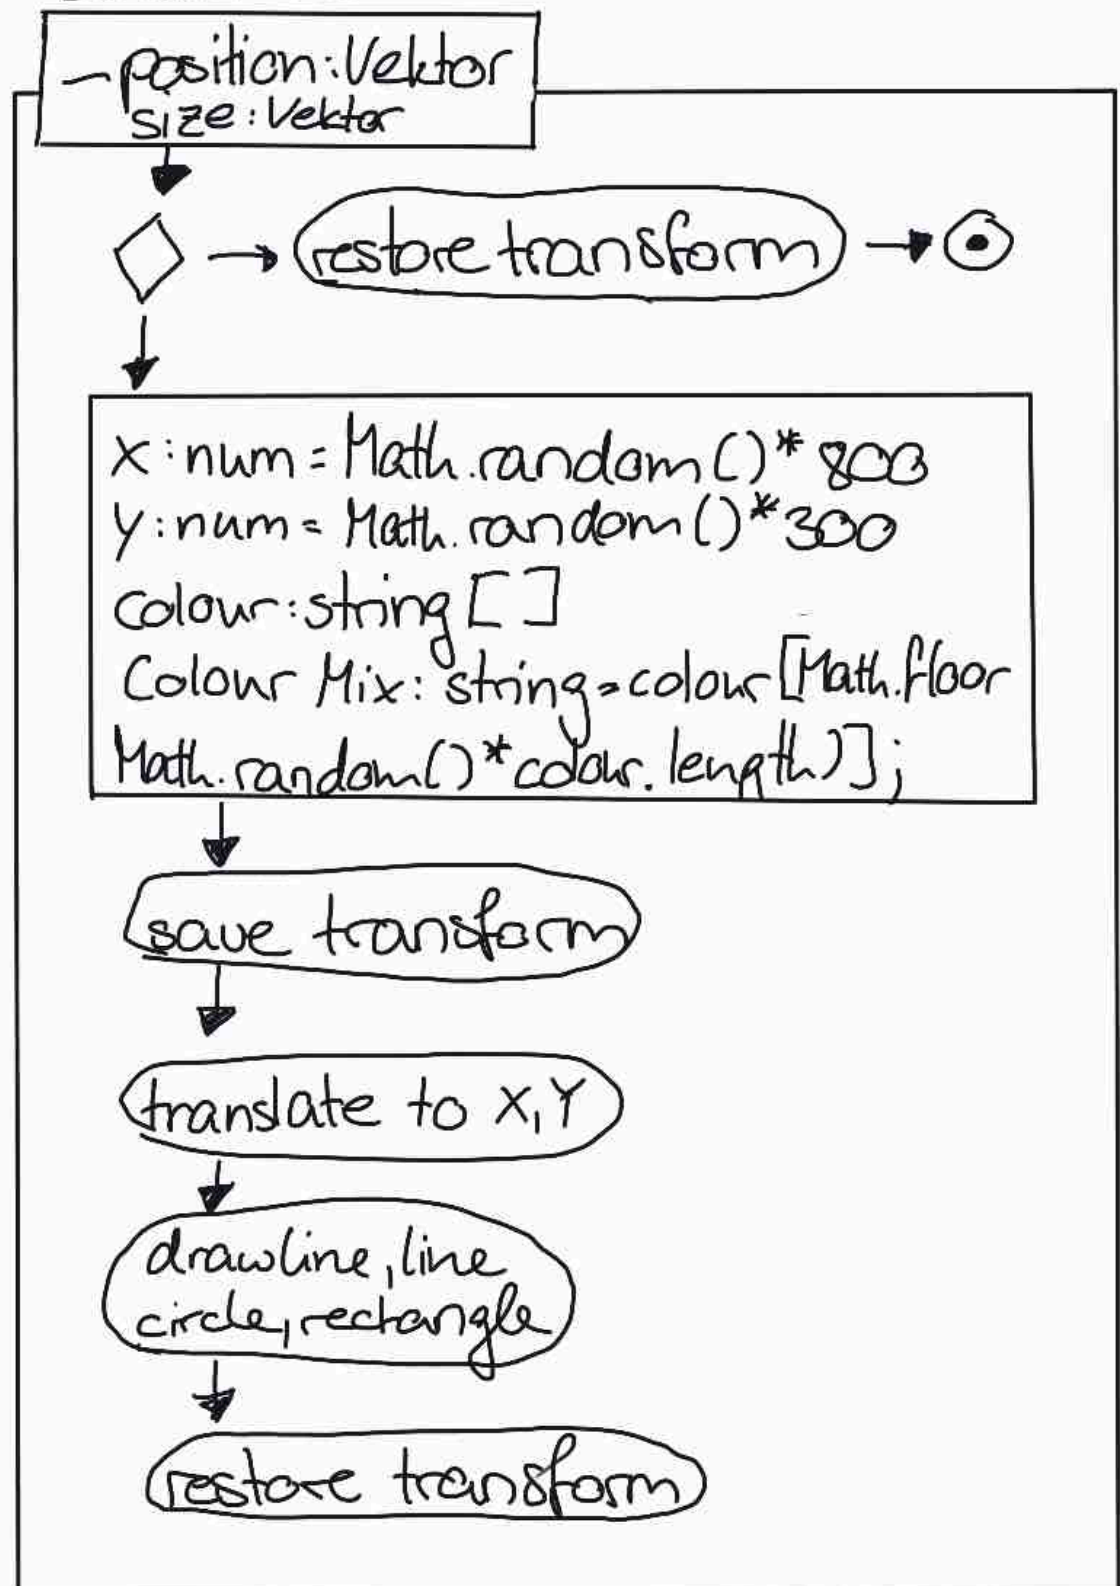 - position: Vektor
size: Vektor
restore transform
X: num = Math.random()* 800
Y: num = Math.random()* 300
colour: string []
Colour Mix: string = colour [Math.floor
Math.random()* colour.length)];
save transform
translate to X, Y
drawline, line
circle, rectangle
restore transform